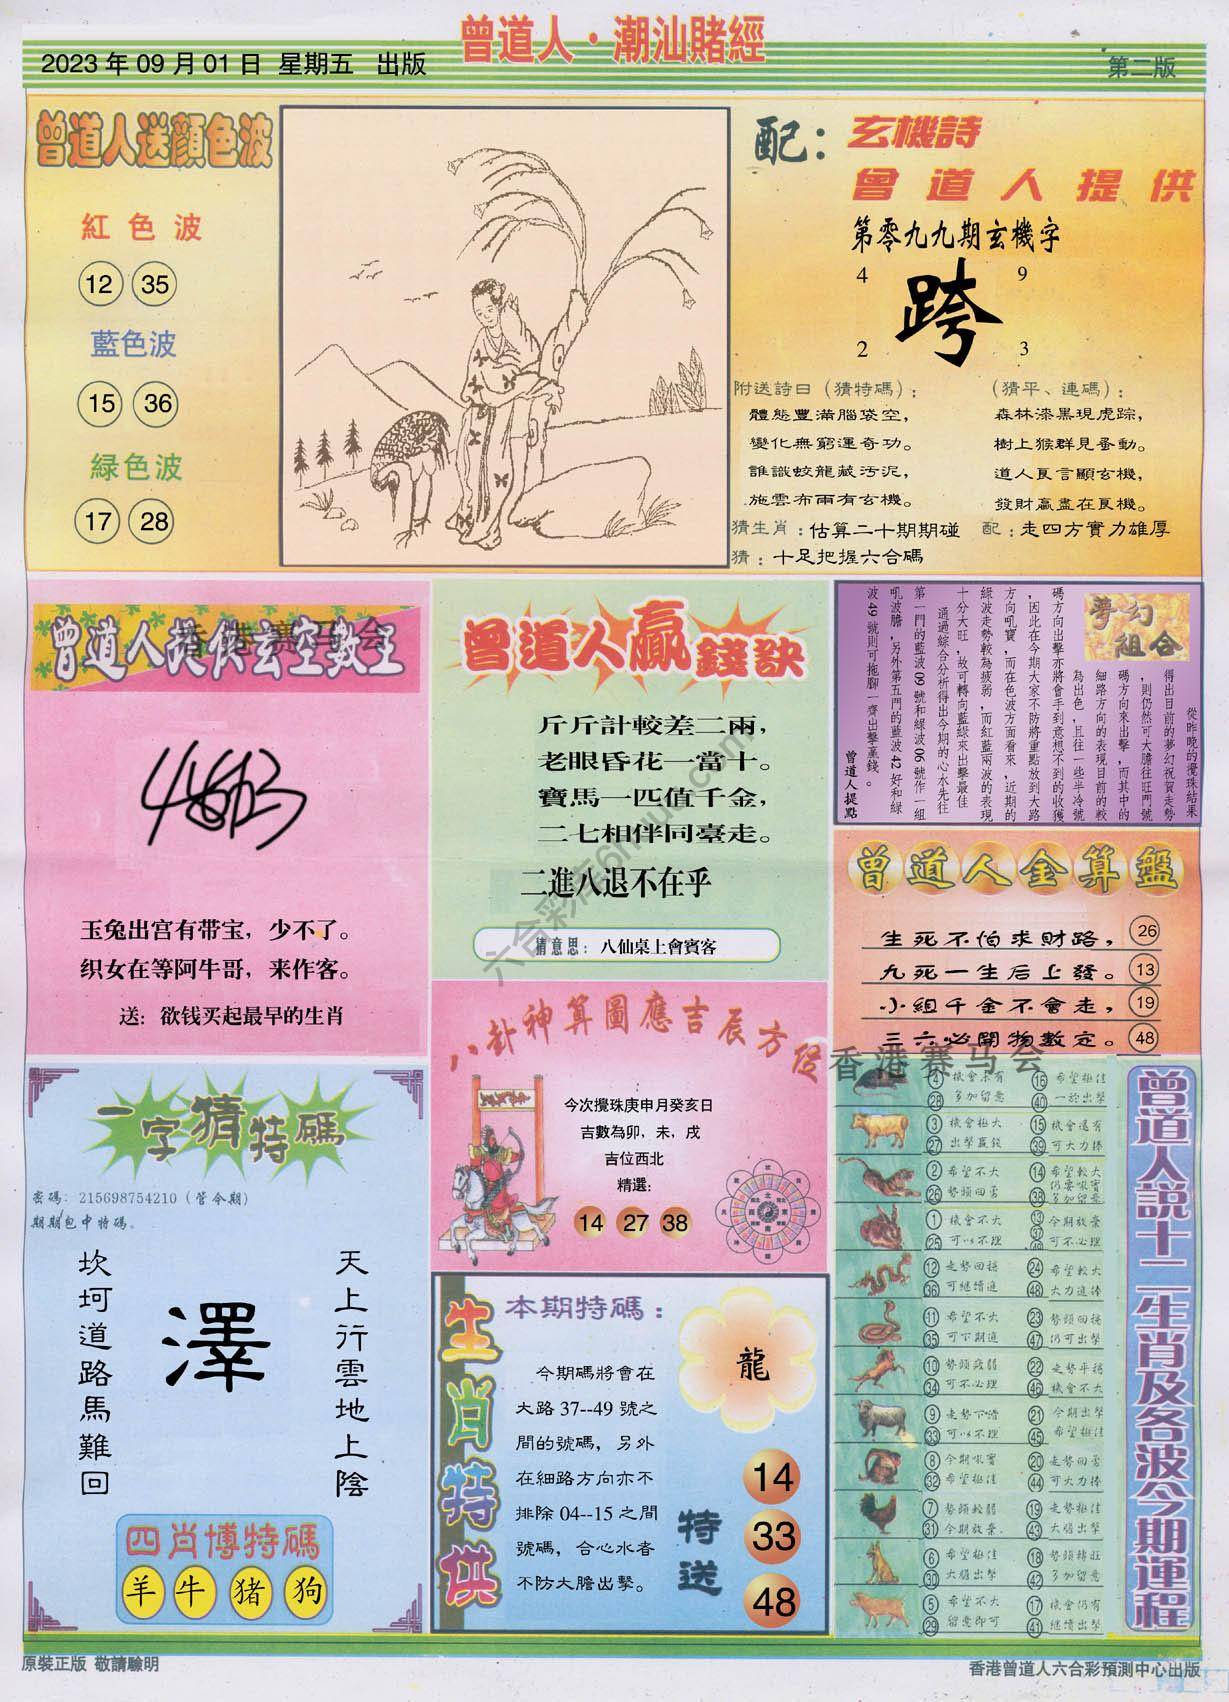 曾道人·潮汕賭經
2023年09月01日 星期五 出版
第二版
曾道人送顏色波
紅色波
12 35
藍色波
15 36
緑色波
17 28
配：玄機詩
曾道人提供
第零九九期玄機字
4 9
跨
2 3
附送詩曰（猜特碼）：
體態豐滿腦袋空，
變化無窮運奇功。
誰識蛟龍藏污泥，
施雲布雨有玄機。
（猜平、連碼）：
森林漆黑現虎踪，
樹上猴群見蚤動。
道人良言顯玄機，
發財贏盡在良機。
猜生肖：估算二十期期碰
配：走四方實力雄厚
猜：十足把握六合碼
曾道人提供玄空數王
香港赛马会
玉兔出宫有带宝，少不了。
织女在等阿牛哥，来作客。
送：欲钱买起最早的生肖
曾道人贏錢訣
斤斤計較差二兩，
老眼昏花一當十。
寶馬一匹值千金，
二七相伴同臺走。
二進八退不在乎
猜意思：八仙桌上會賓客
夢幻組合
從昨晚的攪珠結果
得出目前的夢幻祝賀走勢
，則仍然可大膽往旺門號
碼方向來出擊，而其中的
細路方向的表現目前的較
為出色，且往一些半冷號
碼方向出擊亦將會手到意想不到的收獲
，因此在今期大家不防將重點放到大路
方向吼寶，而在色波方面看來，近期的
綠波走勢較為疲弱，而紅藍兩波的表現
十分大旺，故可轉向藍綠來出擊最佳
通過綜合分析得出今期的心水先往
第一門的藍波09號和綠波06號作一組
吼波膽，另外第五門的藍波42好和綠
波49號則可拖腳一齊出擊贏錢。
曾道人提點
曾道人金算盤
生死不怕求財路，26
九死一生后上發。13
小組千金不會走，19
三六必開物數定。48
香港赛马会
八卦神算圖應吉辰方位
今次攪珠庚申月癸亥日
吉數為卯，未，戌
吉位西北
精選：
14 27 38
一字猜特碼
密碼：215698754210（管令期）
期期包中特碼。
天上行雲地上陰
澤
坎坷道路馬難回
四肖博特碼
羊 牛 猪 狗
生肖特供
本期特碼：
龍
今期碼將會在
大路37--49號之
間的號碼，另外
在細路方向亦不
排除04--15之間
號碼，合心水者
不防大膽出擊。
特送
14
33
48
曾道人説十二生肖及各波今期運程
4 28 機會未有 多加留意 16 40 希望極佳 一於出擊
3 27 機會極大 出擊贏錢 15 39 機會還有 可大力捧
2 26 希望不大 勢頭回落 14 38 希望較大 仍要吼實 多加留意
1 25 機會不大 可以不理 13 37 49 今期放棄 可不必理
12 36 走勢回穩 可繼續追 24 48 希望較大 大力追捧
11 35 希望不大 可下期追 23 47 勢頭回穩 仍可出擊
10 34 勢頭疲弱 可不必理 22 46 走勢平穩 機會不大
9 33 走勢下滑 可以不理 21 45 今期出擊 希望極佳
8 32 今期吼實 希望極佳 20 44 走勢回落 可大力捧
7 31 勢頭較弱 今期放棄. 19 43 走勢極佳 大膽出擊
6 30 希望極佳 大膽出擊 18 42 勢頭轉旺 多加留意
5 29 希望不大 留意即可 17 41 機會仍有 繼續出擊
六合彩库6hhuc.com
原裝正版 敬請驗明
香港曾道人六合彩預測中心出版